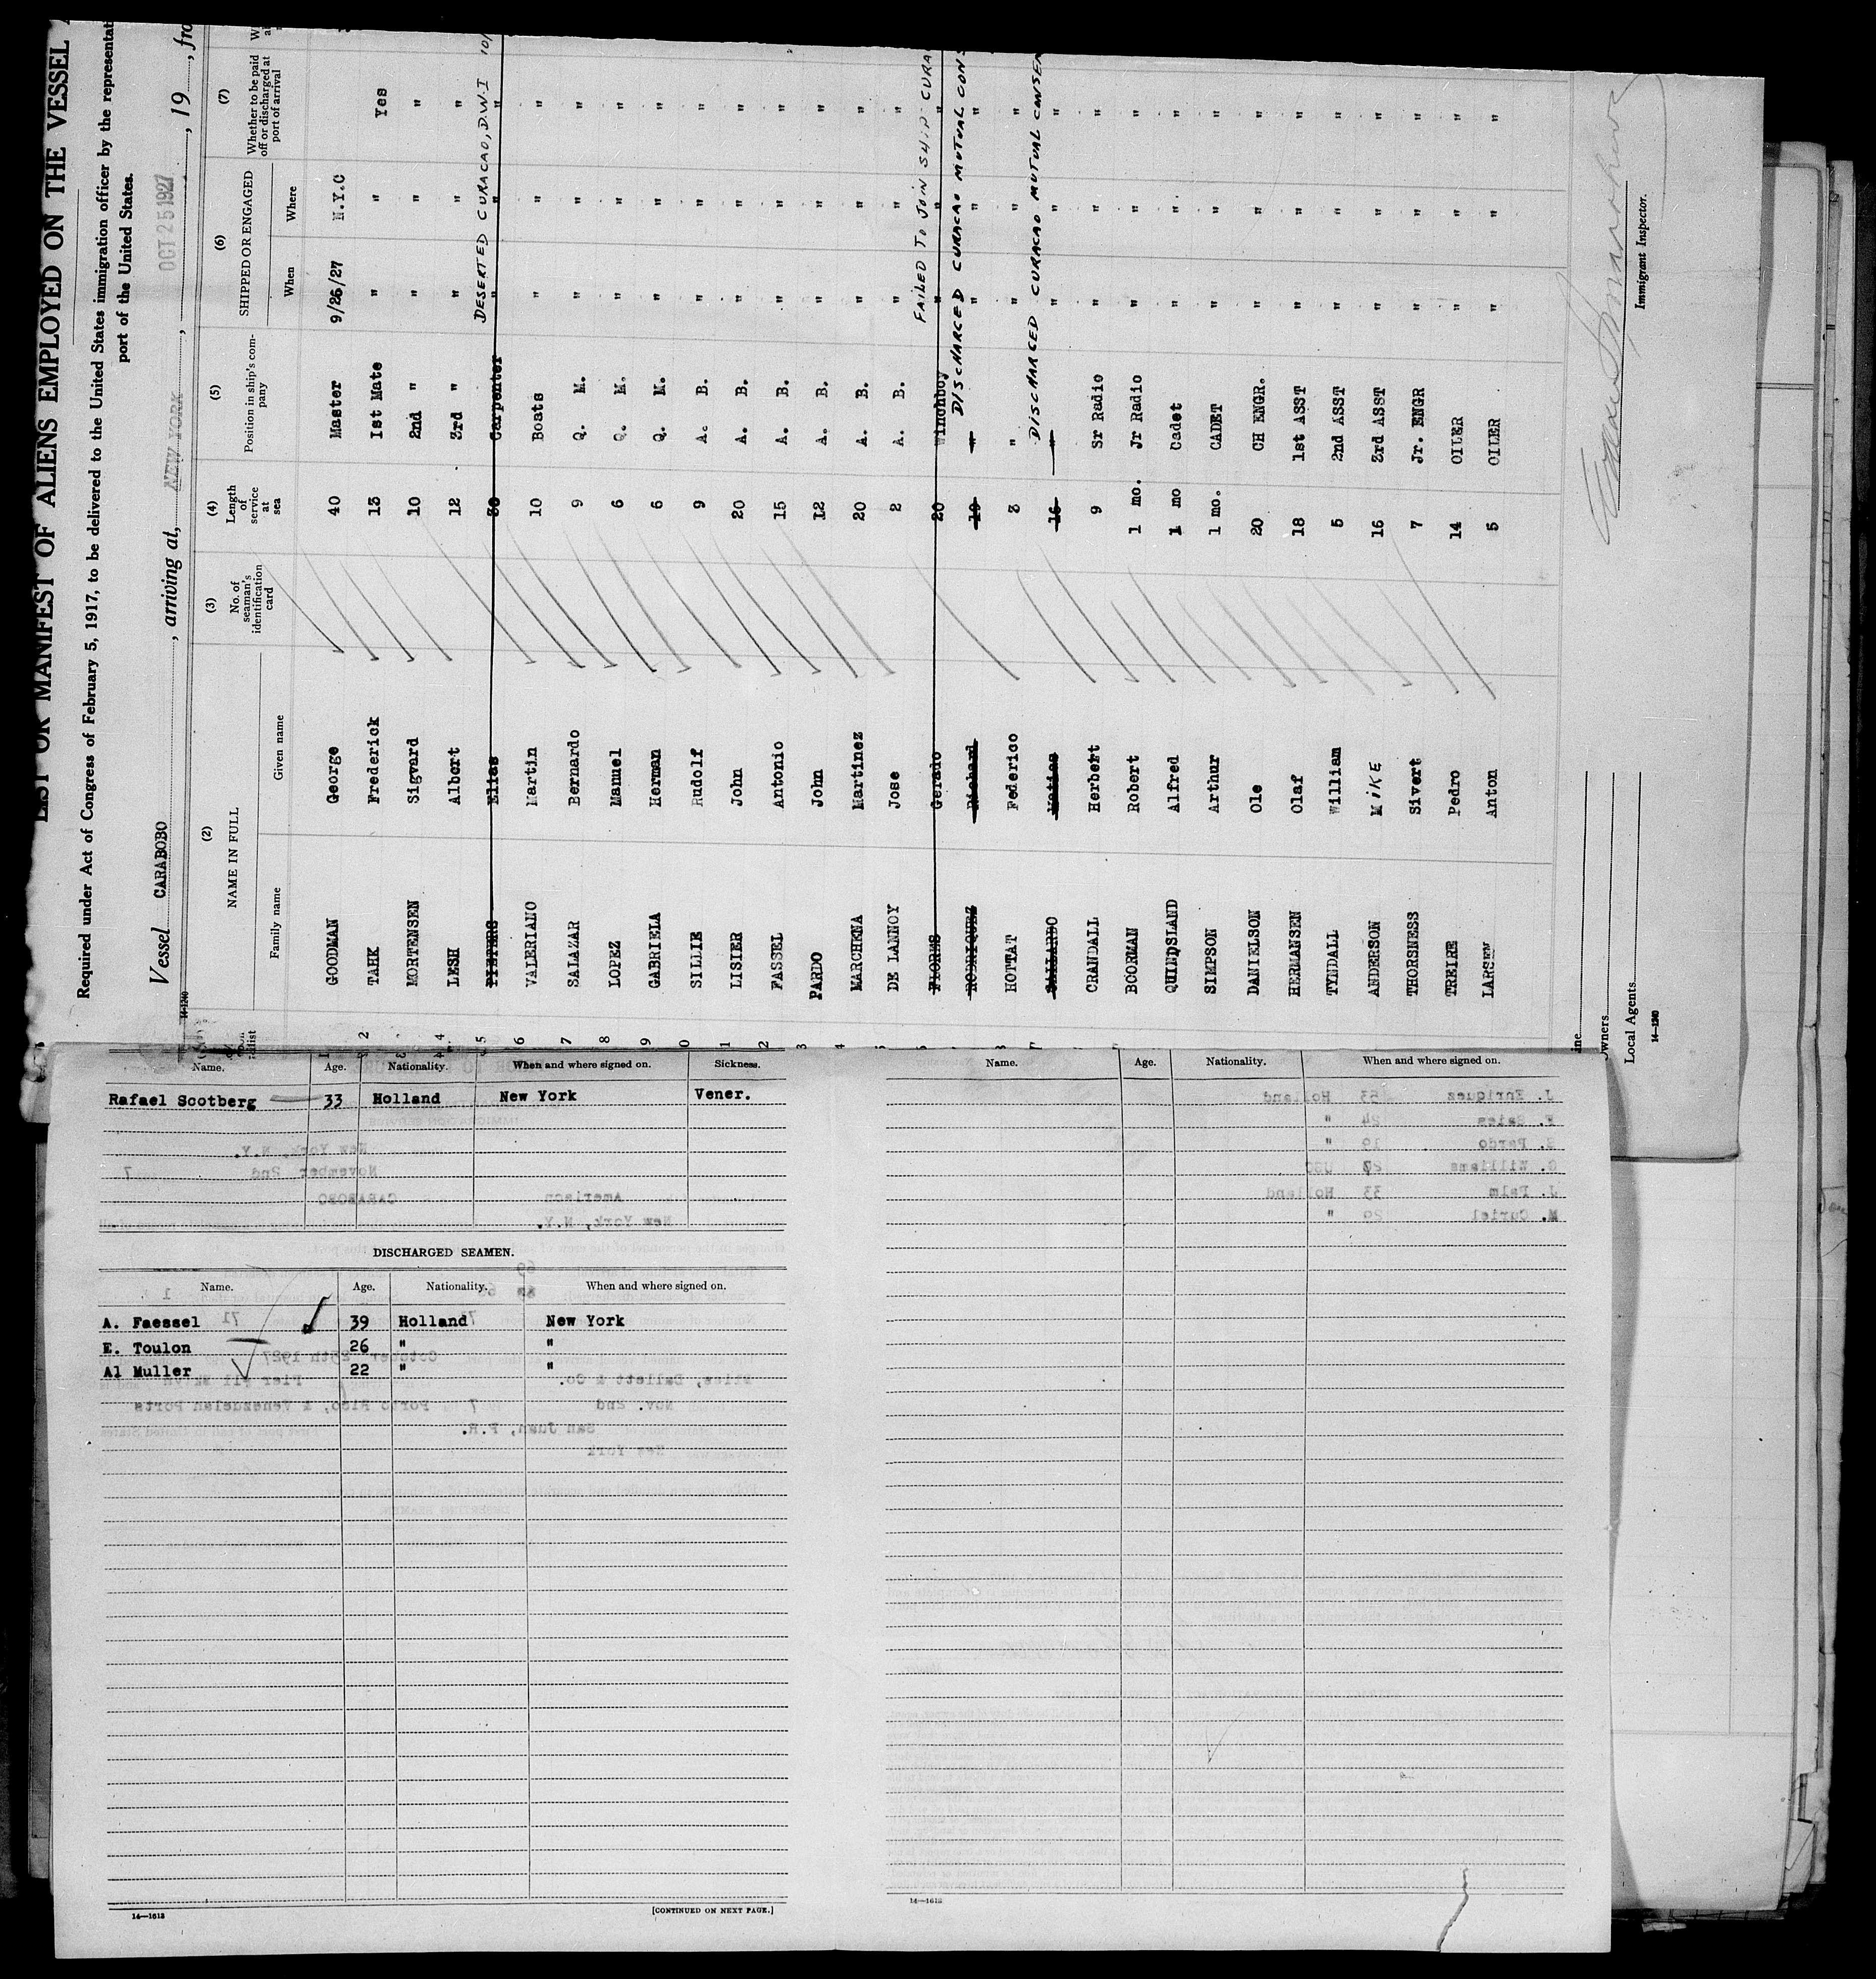 LIST OR MANIFEST OF ALIENS EMPLOYED ON THE VESSEL
Required under Act of Congress of February 5, 1917, to be delivered to the United States immigration officer by the representat
port of the United States.
Vessel CARABOBO, arriving at, NEW YORK, OCT 25 1927, 19, fro
(2) (3) (4) (5) (6) (7)
NAME IN FULL No. of seaman's identification card Length of service at sea Position in ship's company SHIPPED OR ENGAGED Whether to be paid off or discharged at port of arrival
Family name Given name When Where
GOODMAN George 40 Master 9/26/27 N.Y.C Yes
2 TAHK Frederick 13 1st Mate " " "
MORTENSEN Sigvard 10 2nd " " " "
4 LESH Albert 12 3rd " " " "
5 PIETERS Elias 30 Carpenter " " " DESERTED CURACAO, D.W.I 10/
6 VALERIANO Martin 10 Boats " " "
7 SALAZAR Bernardo 9 Q. M. " " "
8 LOPEZ Manuel 6 Q. M. " " "
9 GABRIELA Herman 6 Q. M. " " "
0 SILLIE Rudolf 9 A. B. " " "
1 LISIER John 20 A. B. " " "
2 FASSEL Antonio 15 A. B. " " "
3 PARDO John 12 A. B. " " "
4 MARCHENA Martinez 20 A. B. " " "
DE LANNOY Jose 2 A. B. " " "
FLORES Gerado 20 Winchboy " " " FAILED TO JOIN SHIP CURA
RODRIQUEZ Richard 19 " " " " DISCHARGED CURACAO MUTUAL CONS
HOTTAT Federico 3 " " " "
SALLARDO Matias 16 " " " " DISCHARGED CURACAO MUTUAL CONSEN
CRANDALL Herbert 9 Sr Radio " " "
BOORMAN Robert 1 mo. Jr Radio " " "
QUINDSLAND Alfred 1 mo Cadet " " "
SIMPSON Arthur 1 mo. CADET " " "
DANIELSON Ole 20 CH ENGR. " " "
HERMANSEN Olaf 18 1st ASST " " "
TYNDALL William 5 2nd ASST " " "
ANDERSON MIKE 16 3rd ASST " " "
THORSNESS Sivert 7 Jr. ENGR " " "
TREIRE Pedro 14 OILER " " "
LARSEN Anton 5 OILER " " "
ine
wners
Local Agents
Immigrant Inspector.
14—1240
Name. Age. Nationality. When and where signed on. Sickness.
Rafael Scotberg 33 Holland New York Vener.
DISCHARGED SEAMEN.
Name. Age. Nationality. When and where signed on.
A. Faessel 39 Holland New York
E. Toulon 26 " "
Al Muller 22 " "
14—1612
[CONTINUED ON NEXT PAGE.]
Name. Age. Nationality. When and where signed on.
J. Enriquez 53 Holland
F. Sales 24 "
S. Pardo 19 "
G. Williams USC
J. Palm 33 Holland
M. Curiel 29 "
14—1612